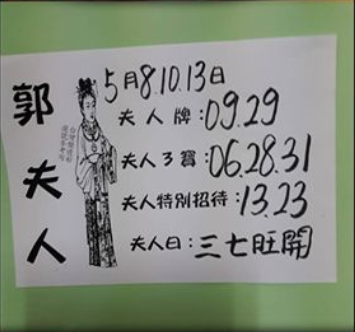 郭夫人
5月8.10.13日
夫人牌:09.29
夫人3寶:06.28.31
夫人特別招待:13.23
夫人曰:三七旺開